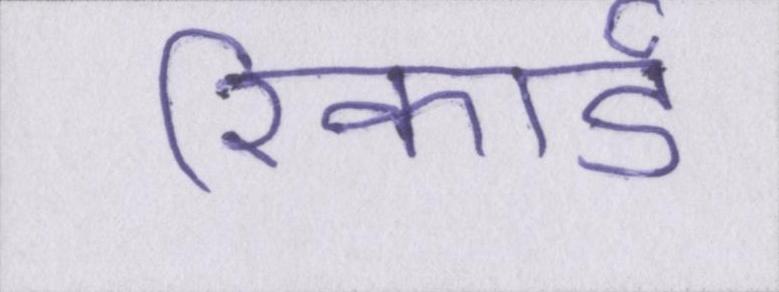 रिकार्ड